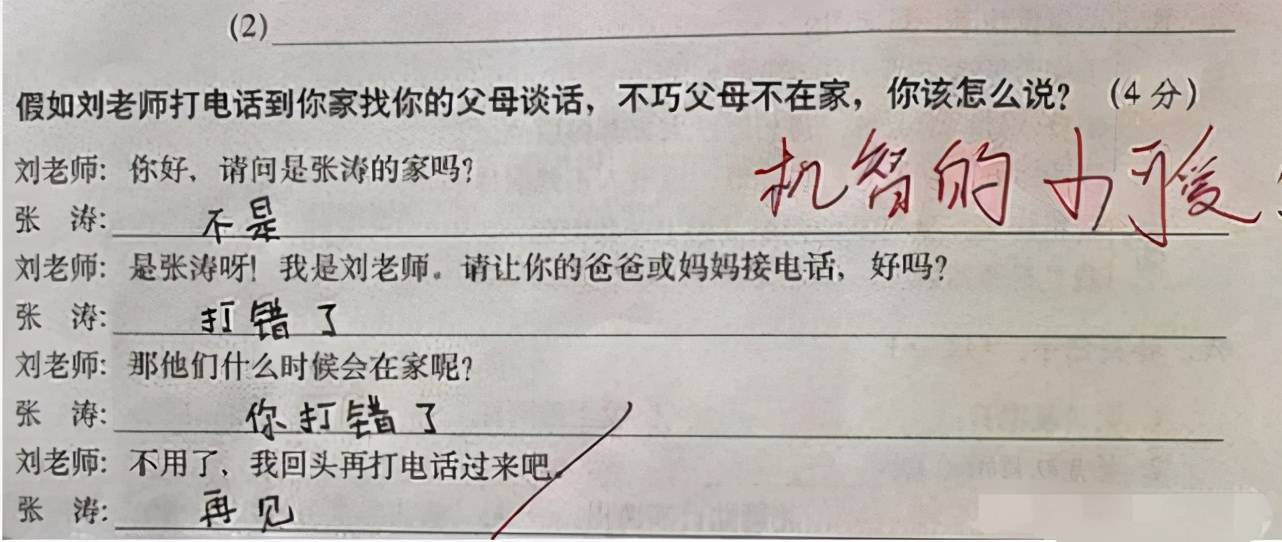 (2)
假如刘老师打电话到你家找你的父母谈话，不巧父母不在家，你该怎么说？（4 分）
刘老师：你好，请问是张涛的家吗？
机智的小可爱
张 涛：不是
刘老师：是张涛呀！我是刘老师。请让你的爸爸或妈妈接电话，好吗？
张 涛：打错了
刘老师：那他们什么时候会在家呢？
张 涛：你打错了
刘老师：不用了，我回头再打电话过来吧。
张 涛：再见